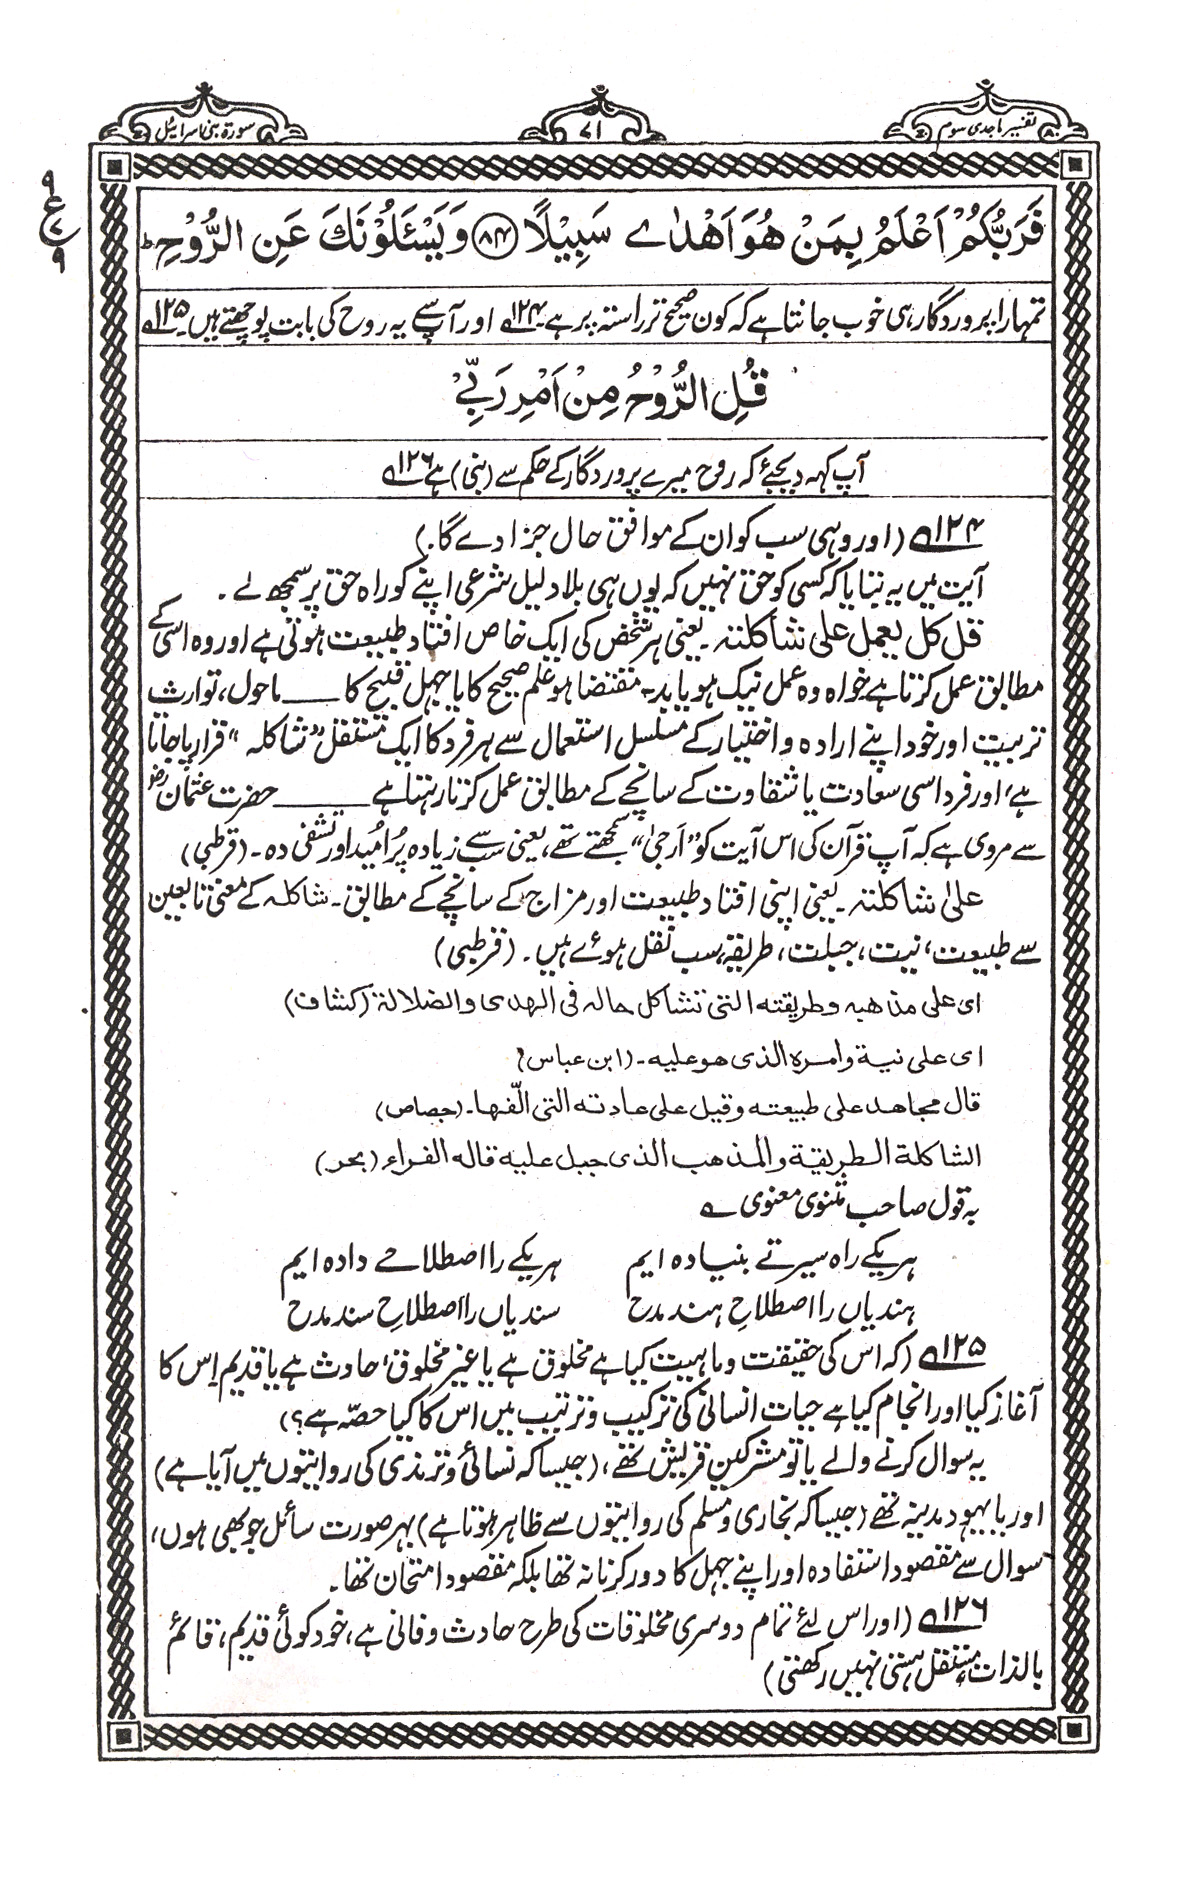 تفسیر ماجدی سوم
۷۱
سورۃ بنی اسرائیل
۹
ع
۹
فَرَبُّكُمْ اَعْلَمُ بِمَنْ هُوَ اَهْدٰے سَبِيْلًا ۸۴ وَ يَسْـَٔلُوْنَكَ عَنِ الرُّوْحِ ؕ
تمہارا پروردگار ہی خوب جانتا ہے کہ کون صحیح تر راستہ پر ہے ۔ ۱۲۴ اور آپ سے یہ روح کی بابت پوچھتے ہیں ۔ ۱۲۵
قُلِ الرُّوْحُ مِنْ اَمْرِ رَبِّيْ
آپ کہہ دیجئے کہ روح میرے پروردگار کے حکم سے (بنی) ہے ۱۲۶
۱۲۴ (اور وہی سب کو ان کے موافق حال جزا دے گا۔)
آیت میں یہ بتایا کہ کسی کو حق نہیں کہ یوں ہی بلا دلیل شرعی اپنے کو راہ حق پر سمجھ لے ۔
قل کل یعمل علی شاکلتہ ۔ یعنی ہر شخص کی ایک خاص افتاد طبیعت ہوتی ہے اور وہ اسی کے
مطابق عمل کرتا ہے خواہ وہ عمل نیک ہو یا بد ۔ مقتضا ہو علم صحیح کا یا جہل قبیح کا ـــــ ماحول، توارث
تربیت اور خود اپنے ارادہ و اختیار کے مسلسل استعمال سے ہر فرد کا ایک مستقل ”شاکلہ“ قرار پا جاتا
ہے، اور فرد اسی سعادت یا شقاوت کے سانچے کے مطابق عمل کرتا رہتا ہے ـــــــ حضرت عثمان رض
سے مروی ہے کہ آپ قرآن کی اس آیت کو ”اَرجیٰ“ سمجھتے تھے، یعنی سب سے زیادہ پُر امید اور تشفی دہ ۔ (قرطبی)
علیٰ شاکلتہ ۔ یعنی اپنی افتاد طبیعت اور مزاج کے سانچے کے مطابق ۔ شاکلہ کے معنی تابعین
سے طبیعت، نیت، جبلت، طریقہ، سب نقل ہوئے ہیں ۔ (قرطبی)
ای علی مذھبہ وطریقتہ التی تشاکل حالہ فی الھدی والضلالۃ (کشاف)
ای علی نیۃ وامرہ الذی ھو علیہ ۔ (ابن عباس)
قال مجاھد علی طبیعتہ وقیل علی عادتہ التی الّفھا ۔ (جصاص)
الشاکلۃ الطریقۃ والمذھب الذی جبل علیہ قالہ الفراء (بحر)
بہ قول صاحب مثنوی معنوی ے
ہریکے راہ سیرتے بنہادہ ایم ہریکے را اصطلاحے دادہ ایم
ہندیاں را اصطلاحِ ہند مدح سندیاں را اصطلاحِ سند مدح
۱۲۵ (کہ اس کی حقیقت و ماہیت کیا ہے مخلوق ہے یا غیر مخلوق، حادث ہے یا قدیم اِس کا
آغاز کیا اور انجام کیا ہے حیات انسانی کی ترکیب و ترتیب میں اس کا کیا حصّہ ہے؟)
یہ سوال کرنے والے یا تو مشرکین قریش تھے، (جیسا کہ نسائی و ترمذی کی روایتوں میں آیا ہے)
اور یا یہود مدینہ تھے (جیسا کہ بخاری و مسلم کی روایتوں سے ظاہر ہوتا ہے) بہر صورت سائل جو بھی ہوں،
سوال سے مقصود استفادہ اور اپنے جہل کا دور کرنا نہ تھا بلکہ مقصود امتحان تھا ۔
۱۲۶ (اور اس لئے تمام دوسری مخلوقات کی طرح حادث و فانی ہے، خود کوئی قدیم، قائم
بالذات، مستقل ہستی نہیں رکھتی)